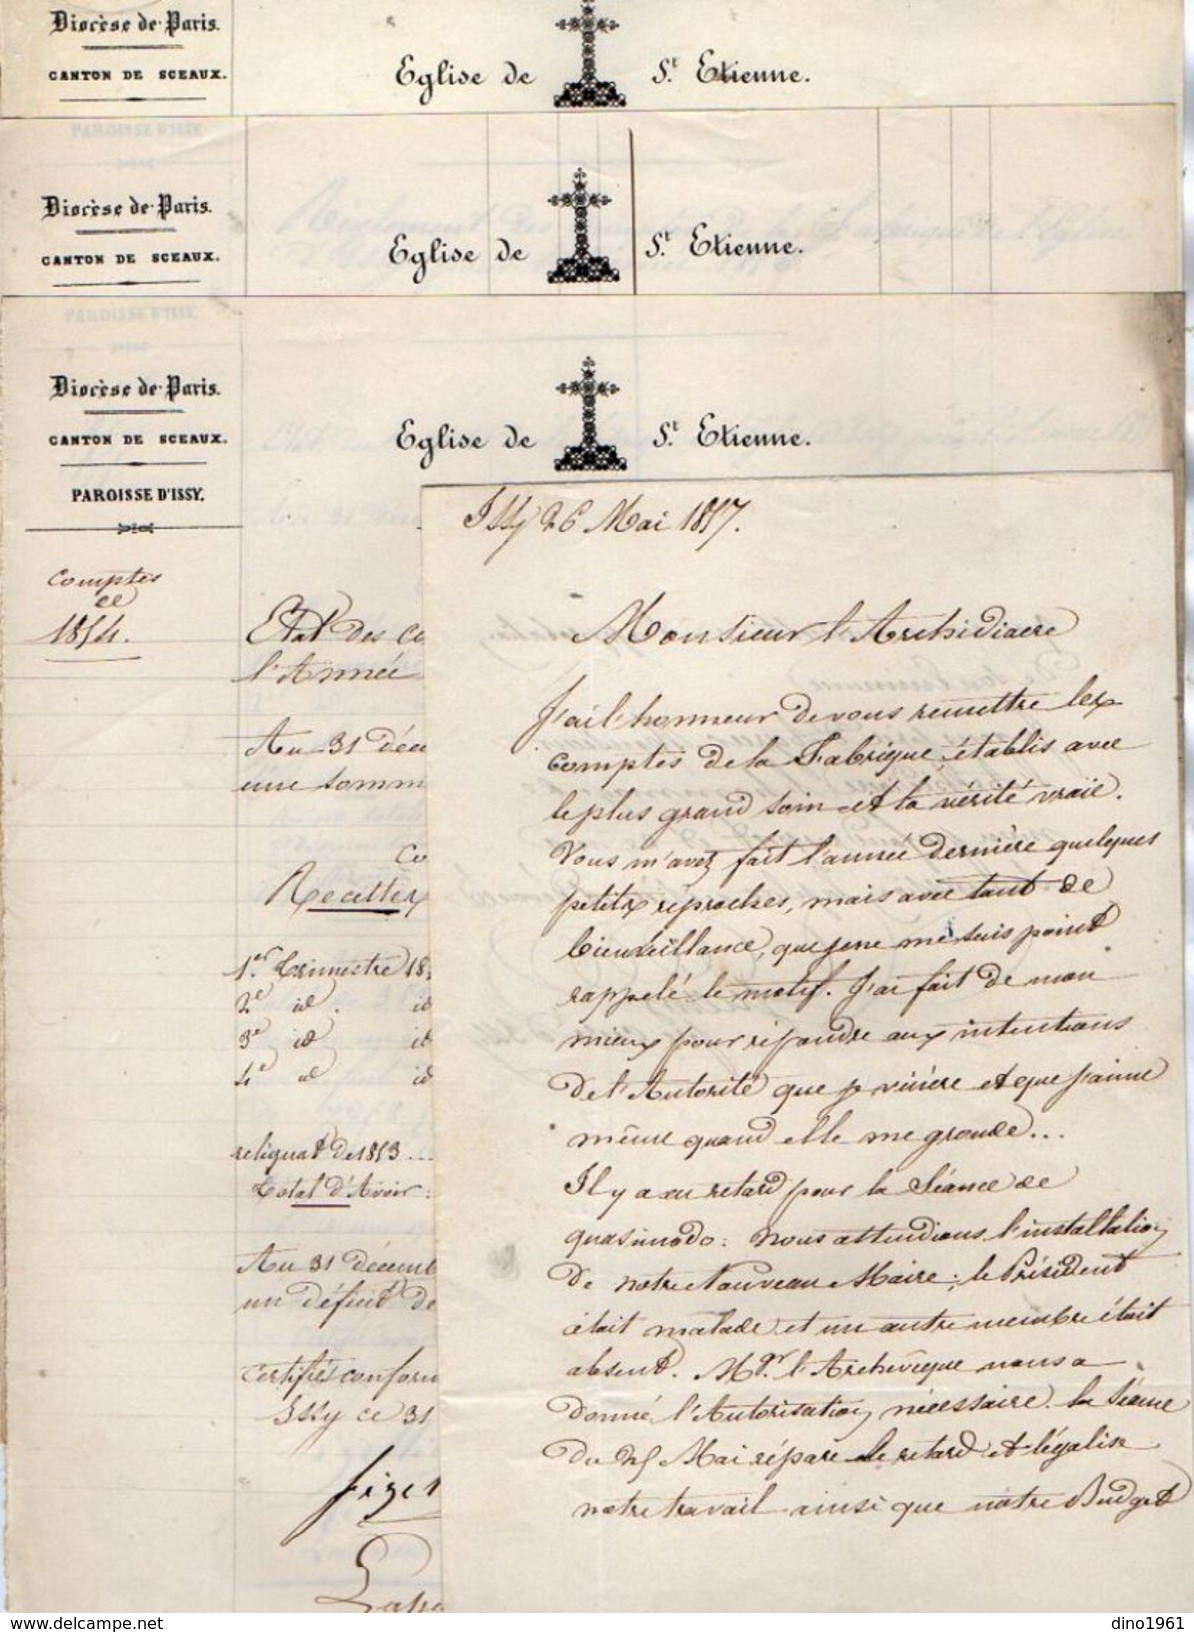 Diocèse de Paris.
CANTON DE SCEAUX.
Eglise de St. Etienne.
PAROISSE D'ISSY.
Diocèse de Paris.
CANTON DE SCEAUX.
Eglise de St. Etienne.
PAROISSE D'ISSY.
Diocèse de Paris.
CANTON DE SCEAUX.
PAROISSE D'ISSY.
Eglise de St. Etienne.
Comptes
de
1854.
Etat des co
l'Année
Au 31 déce
une somm
Co
Recettes
1er. trimestre 18
2e id. id
3e id id
4e id id
reliquat de 1853...
Total d'Avoir:
Au 31 décemb
un déficit de
Certifiés conform
Issy ce 31
Issy 26 Mai 1857.
Monsieur l'Archidiacre
J'ai l'honneur de vous remettre les
comptes de la Fabrique, établis avec
le plus grand soin et la vérité vraïe.
Vous m'avez fait l'année dernière quelques
petits reproches, mais avec tant de
bienveillance, que je ne me suis point
rappelé le motif. J'ai fait de mon
mieux pour répondre aux intentions
de l'Autorité que je vénère et que j'aime
même quand elle me gronde...
Il y a eu retard pour la Séance de
quasimodo: nous attendions l'installation
de notre Nouveau Maire; le Président
était malade et un autre membre était
absent. Mgr. l'Archevêque nous a
donné l'Autorisation nécessaire. la Séance
du 25 Mai répare le retard et légalise
notre travail ainsi que notre Budget
dino1961